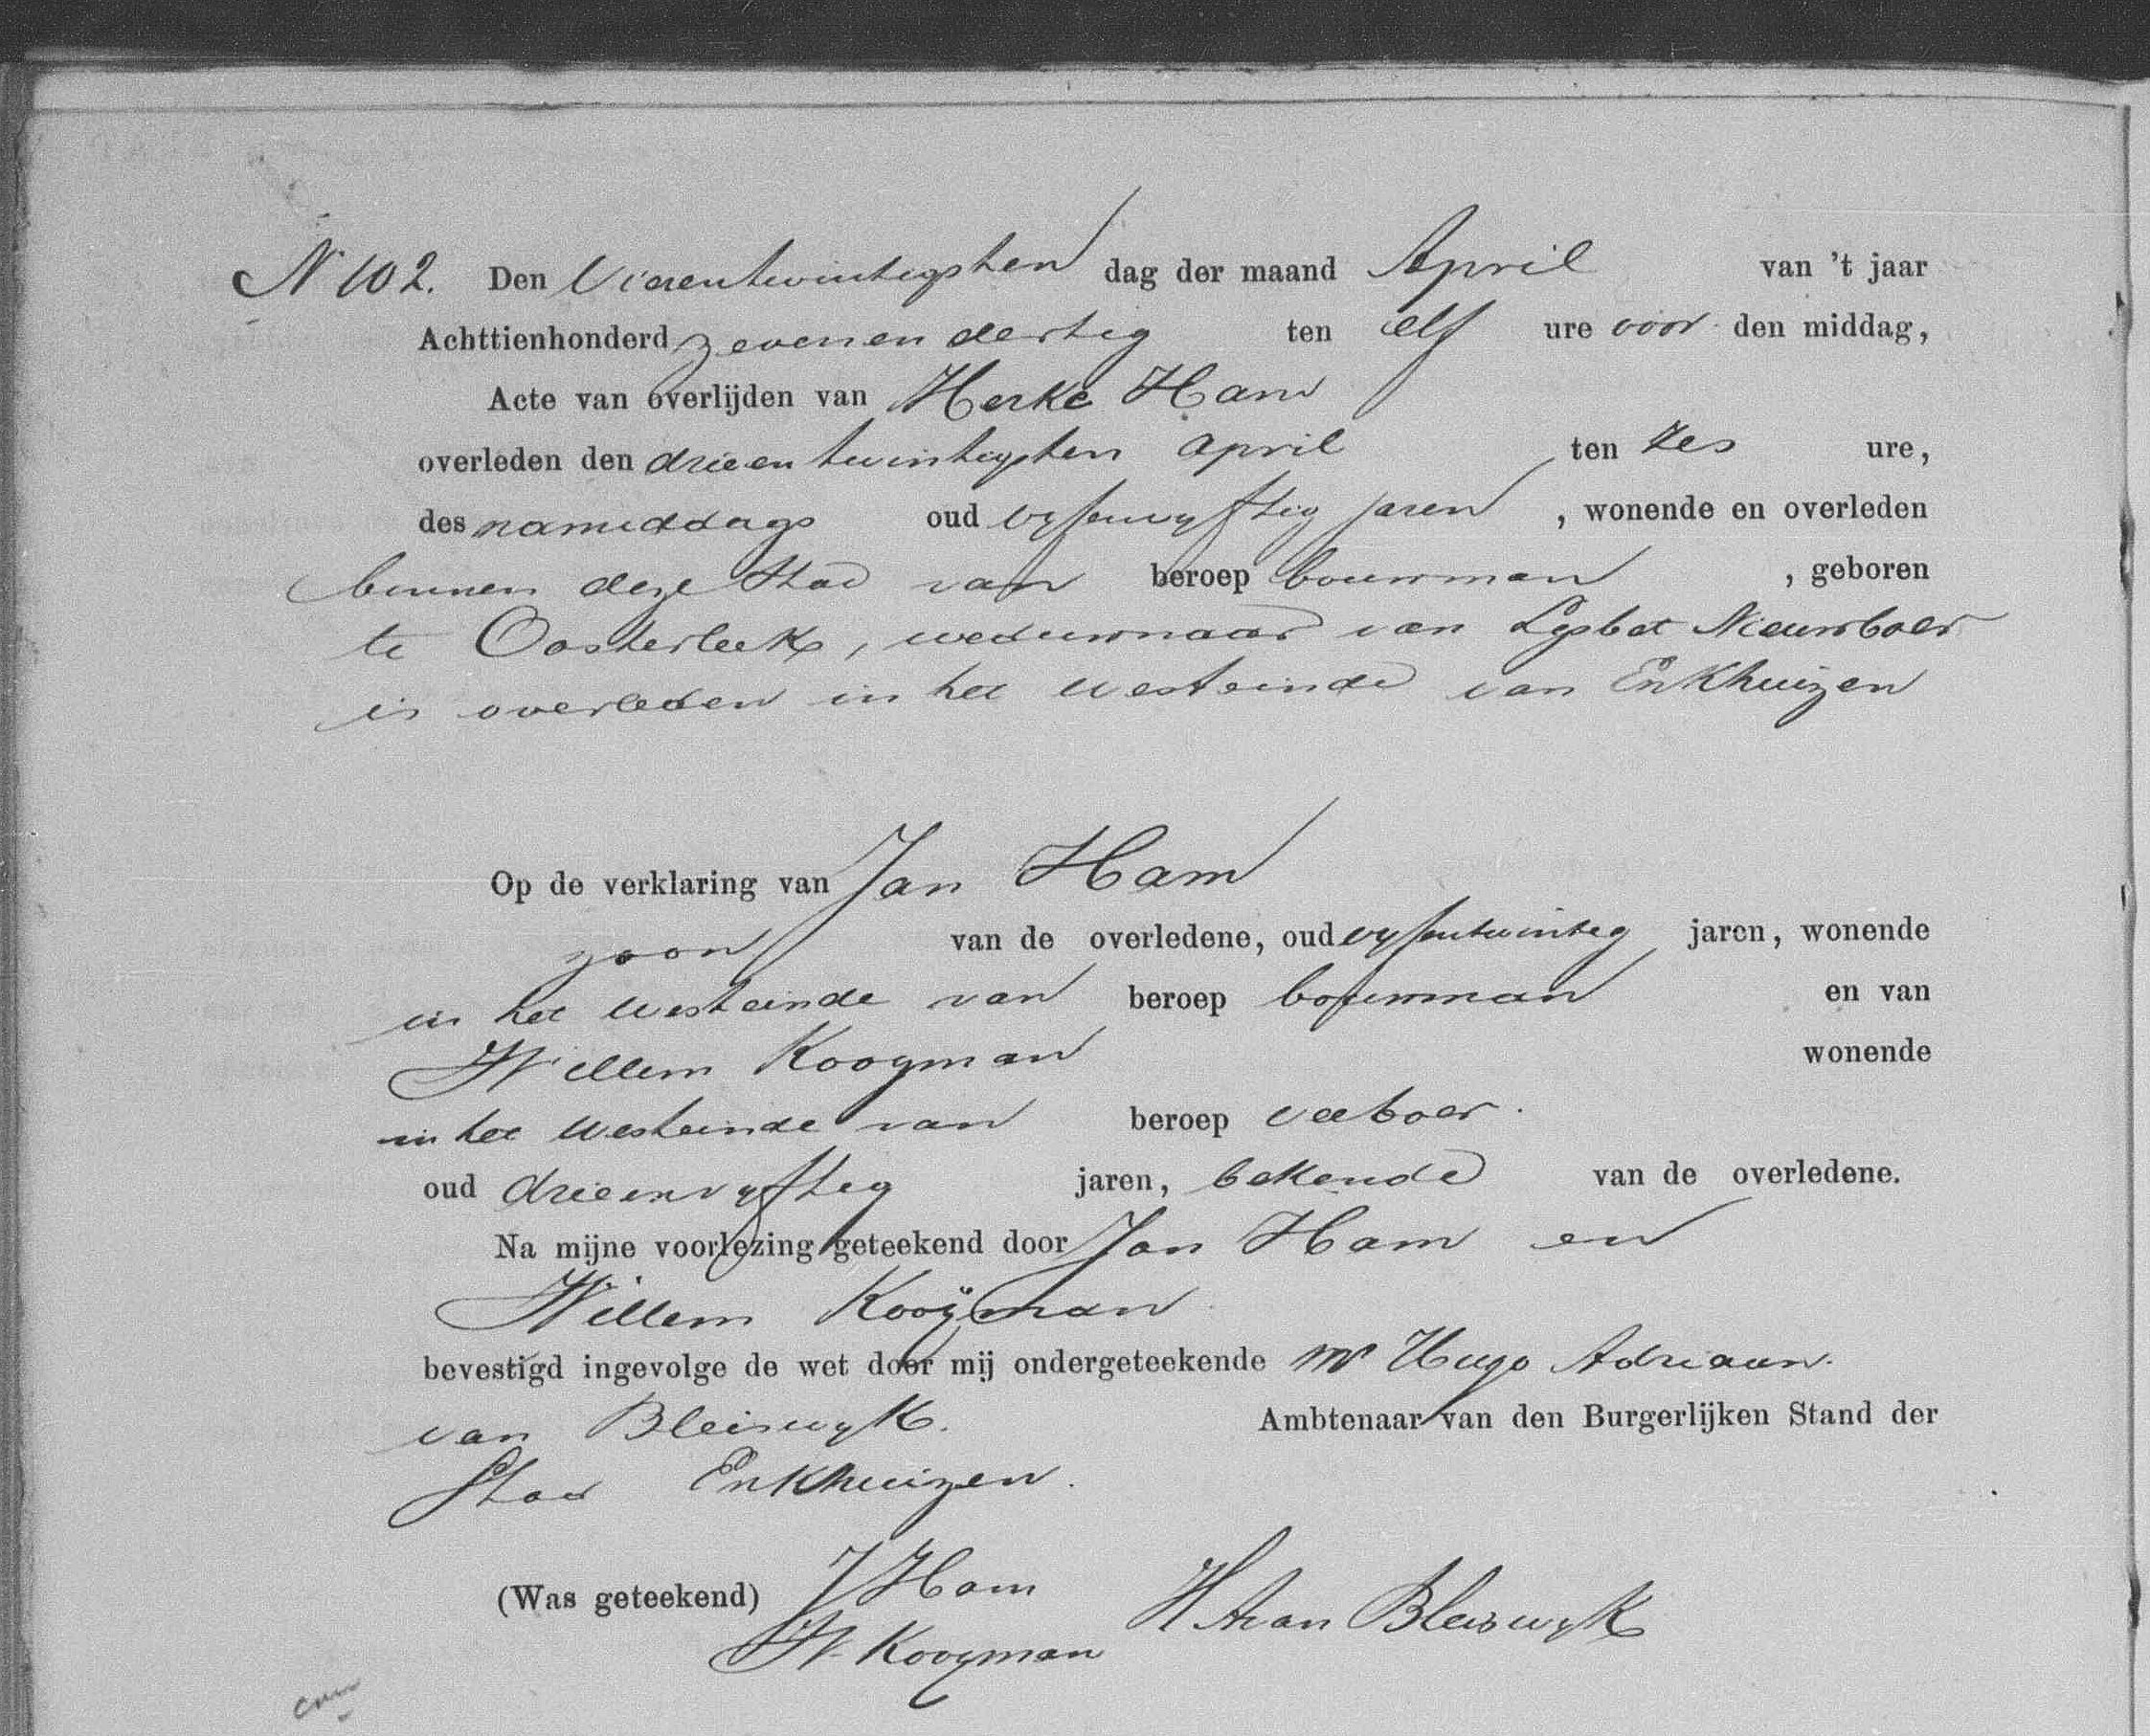 N 102. Den Vierentwintigsten dag der maand April van 't jaar
Achttienhonderd zevenendertig ten elf ure voor den middag,
Acte van overlijden van Herke Ham
overleden den drieentwintigsten april ten zes ure,
des namiddags oud vyfenvyftig jaren , wonende en overleden
binnen deze Stad van beroep bouwman , geboren
te Oosterleek, weduwnaar van Lysbet Nieuwboer
is overleden in het westeinde van Enkhuizen
Op de verklaring van Jan Ham
zoon van de overledene, oud vyfentwinteg jaren, wonende
in het westeinde van beroep bouwman en van
Willem Kooyman wonende
in het westeinde van beroep veeboer.
oud drieenvyfteg jaren, bekende van de overledene.
Na mijne voorlezing geteekend door Jan Ham en
Willem Kooÿman
bevestigd ingevolge de wet door mij ondergeteekende Mr Hugo Adriaan
van Bleiswyk. Ambtenaar van den Burgerlijken Stand der
Stad Enkhuizen.
(Was geteekend) J Ham
H A van Bleiswyk
W. Kooyman